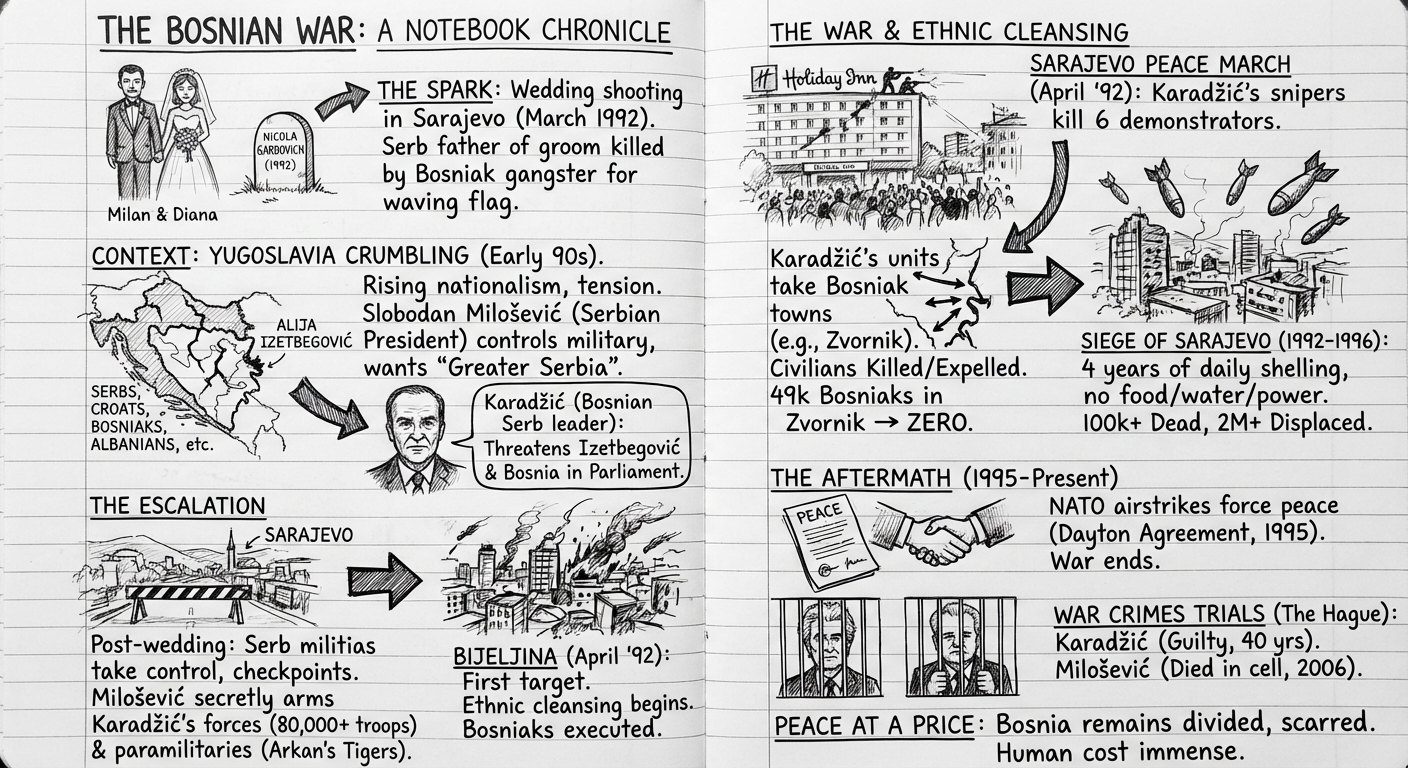 THE BOSNIAN WAR: A NOTEBOOK CHRONICLE
NICOLA
GARĐOVICH
(1992)
Milan & Diana
THE SPARK: Wedding shooting
in Sarajevo (March 1992).
Serb father of groom killed
by Bosniak gangster for
waving flag.
CONTEXT: YUGOSLAVIA CRUMBLING (Early 90s).
Rising nationalism, tension.
Slobodan Milošević (Serbian
President) controls military,
wants “Greater Serbia”.
ALIJA
IZETBEGOVIĆ
SERBS,
CROATS,
BOSNIAKS,
ALBANIANS, etc.
Karadžić (Bosnian
Serb leader):
Threatens Izetbegović
& Bosnia in Parliament.
THE ESCALATION
SARAJEVO
Post-wedding: Serb militias
take control, checkpoints.
Milošević secretly arms
Karadžić’s forces (80,000+ troops)
& paramilitaries (Arkan’s Tigers).
BIJELJINA (April '92):
First target.
Ethnic cleansing begins.
Bosniaks executed.
THE WAR & ETHNIC CLEANSING
H Holiday Inn
SARAJEVO PEACE MARCH
(April '92): Karadžić’s snipers
kill 6 demonstrators.
Karadžić’s units
take Bosniak
towns
(e.g., Zvornik).
Civilians Killed/Expelled.
49k Bosniaks in
Zvornik → ZERO.
SIEGE OF SARAJEVO (1992-1996):
4 years of daily shelling,
no food/water/power.
100k+ Dead, 2M+ Displaced.
THE AFTERMATH (1995-Present)
PEACE
NATO airstrikes force peace
(Dayton Agreement, 1995).
War ends.
WAR CRIMES TRIALS (The Hague):
Karadžić (Guilty, 40 yrs).
Milošević (Died in cell, 2006).
PEACE AT A PRICE: Bosnia remains divided, scarred.
Human cost immense.